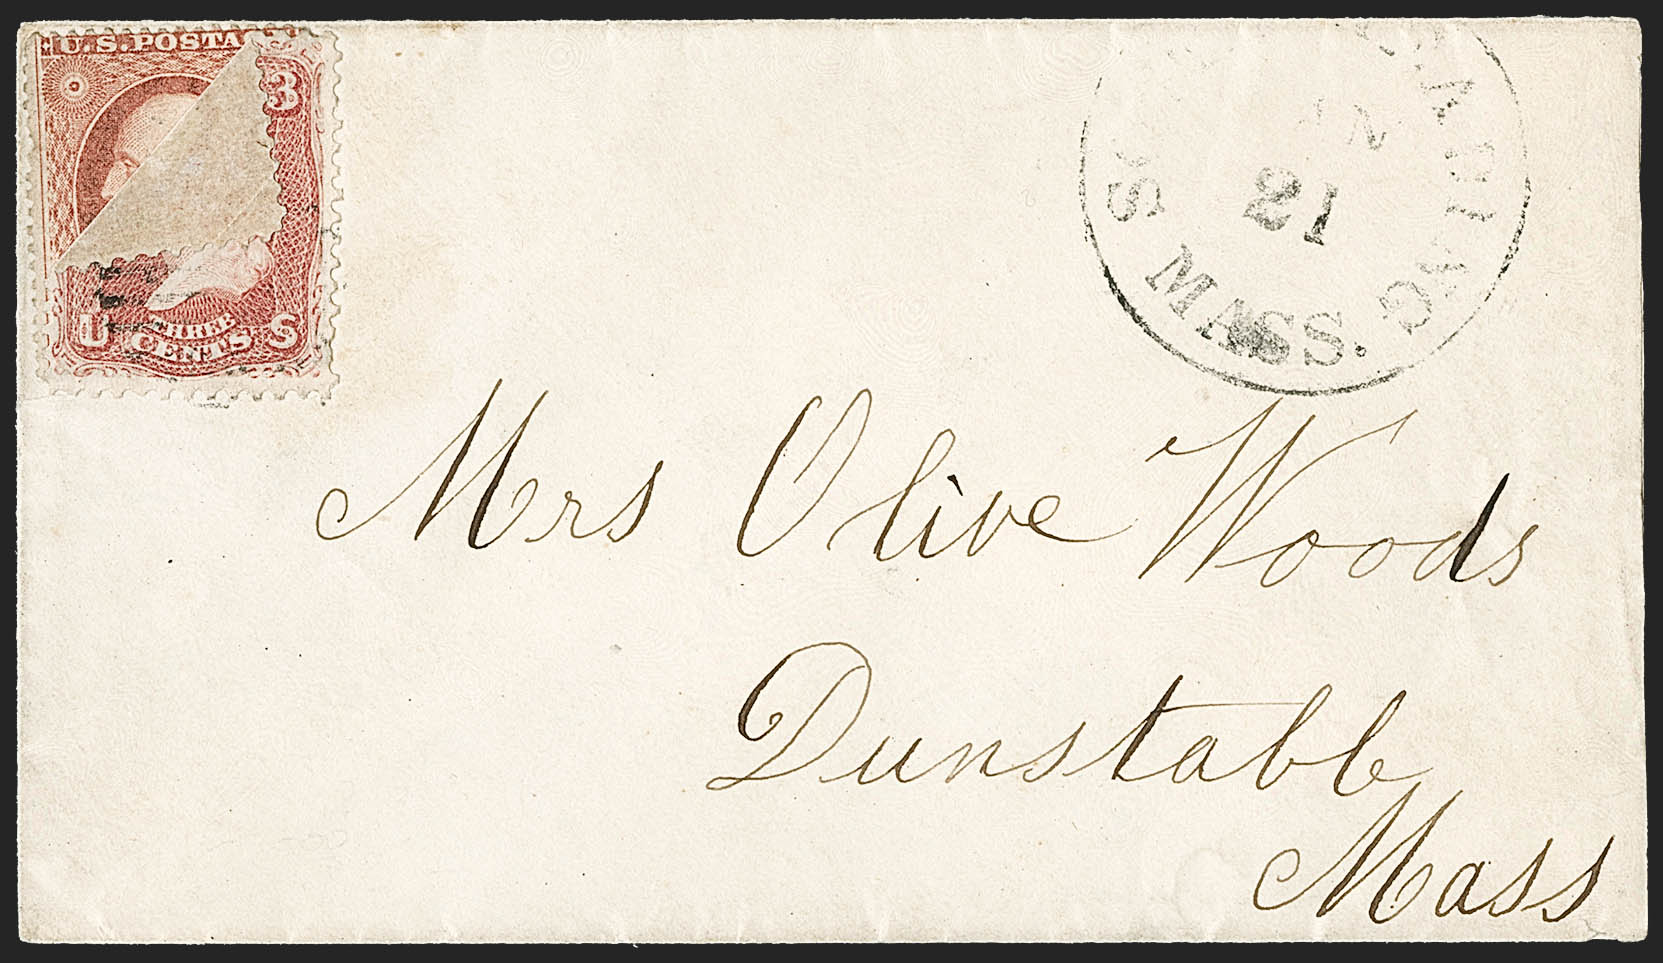 U.S. POSTA
3
U THREE CENTS S
21
S. READING MASS.
Mrs Olive Woods
Dunstable
Mass